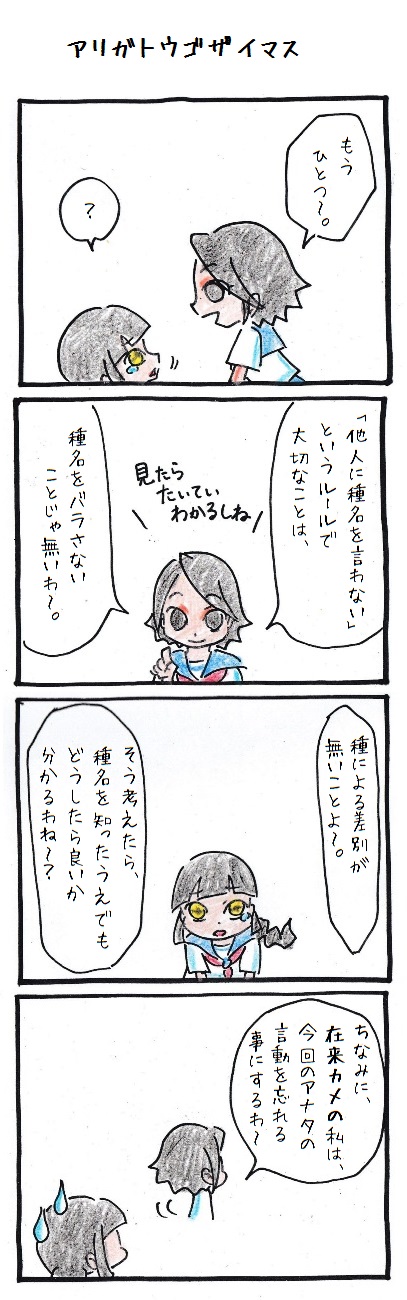 アリガトウゴザイマス
もう
ひとつ〜。
?
「他人に種名を言わない」
というルールで
大切なことは、
見たら
たいてい
わかるしね
種名をバラさない
ことじゃ無いわ〜。
種による差別が
無いことよ〜。
そう考えたら、
種名を知ったうえでも
どうしたら良いか
分かるわね〜?
ちなみに、
在来カメの私は、
今回のアナタの
言動を忘れる
事にするわ〜